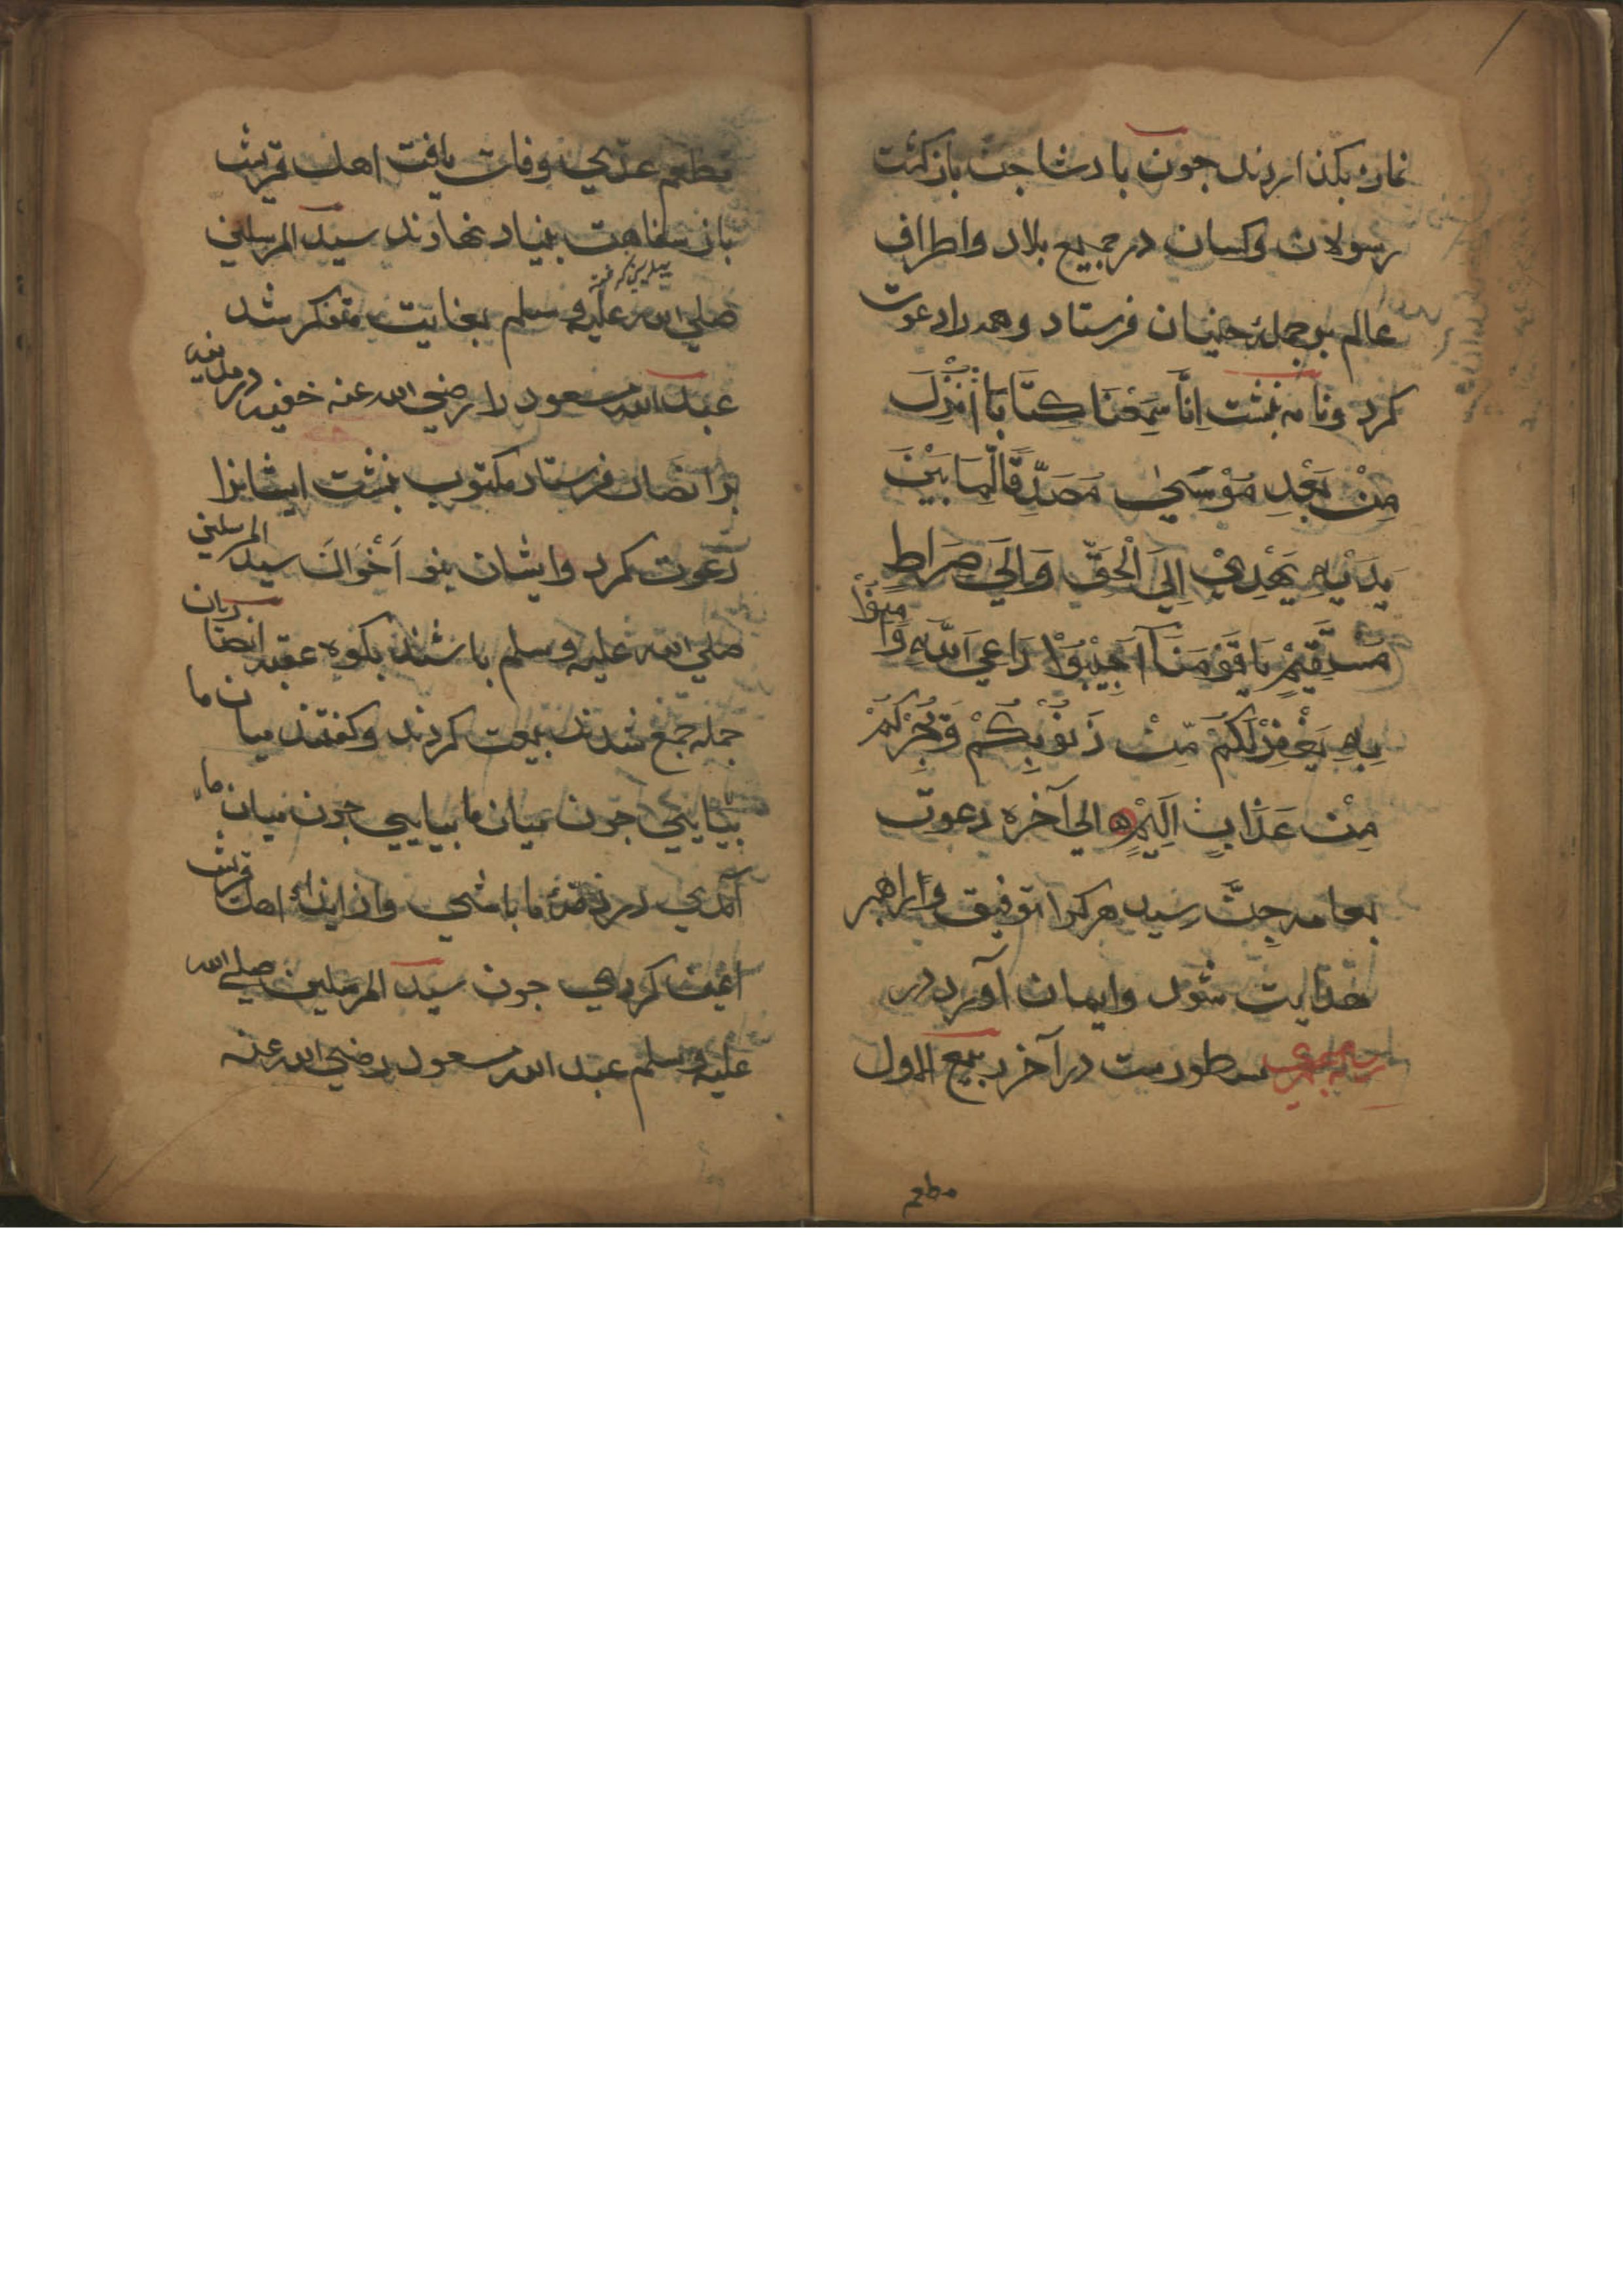 نماز بكذاردند جون بادشاجن باز كشت
رسولان وكسان در جميع بلاد واطراف
عالم بر جملهٔ جنيان فرستاد وهمه را دعوت
كرد ونامه نبشت اِنَّا سَمِعْنَا كِتَابًا اُنْزِلَ
مِنْ بَعْدِ مُوْسَىٰ مُصَدِّقًا لِّمَا بَيْنَ
يَدَيْهِ يَهْدِيْ اِلَى الْحَقِّ وَاِلَى صِرَاطٍ
مُسْتَقِيْمٍ يَا قَوْمَنَا اَجِيْبُوْا دَاعِيَ اللّٰهِ وَاٰمِنُوْا
بِهِ يَغْفِرْ لَكُمْ مِّنْ ذُنُوْبِكُمْ وَيُجِرْكُمْ
مِنْ عَذَابٍ اَلِيْمٍ ه الى آخره دعوت
بعامه جنّ رسيد هر كرا توفيق وراهبر
هدايت شود وايمان آورد در
سطورست در آخر ربيع الاول
مطعم
مطعم عدي وفات يافت اهل قريش
باز سفاهت بنياد نهادند سيد المرسلين
صلى الله عليه وسلم بغايت متفكر شد
عبد الله مسعود را رضي الله عنه خفيه در مدينه
بر انصار فرستاد مكتوب نبشت ايشانرا
دعوت كرد وايشان بنو اَخْوَال سيد المرسلين
صلى الله عليه وسلم باشند بكوه عقبه
جمله جمع شدند بيعت كردند وكفتند ميان ما
بيايي جون ميان ما بيايي جون ميان ما
آمدي در ذمّهٔ ما باشي واز ايذاء اهل قريش
ايمن كردي جون سيد المرسلين صلى الله
عليه وسلم عبد الله مسعود رضي الله عنه